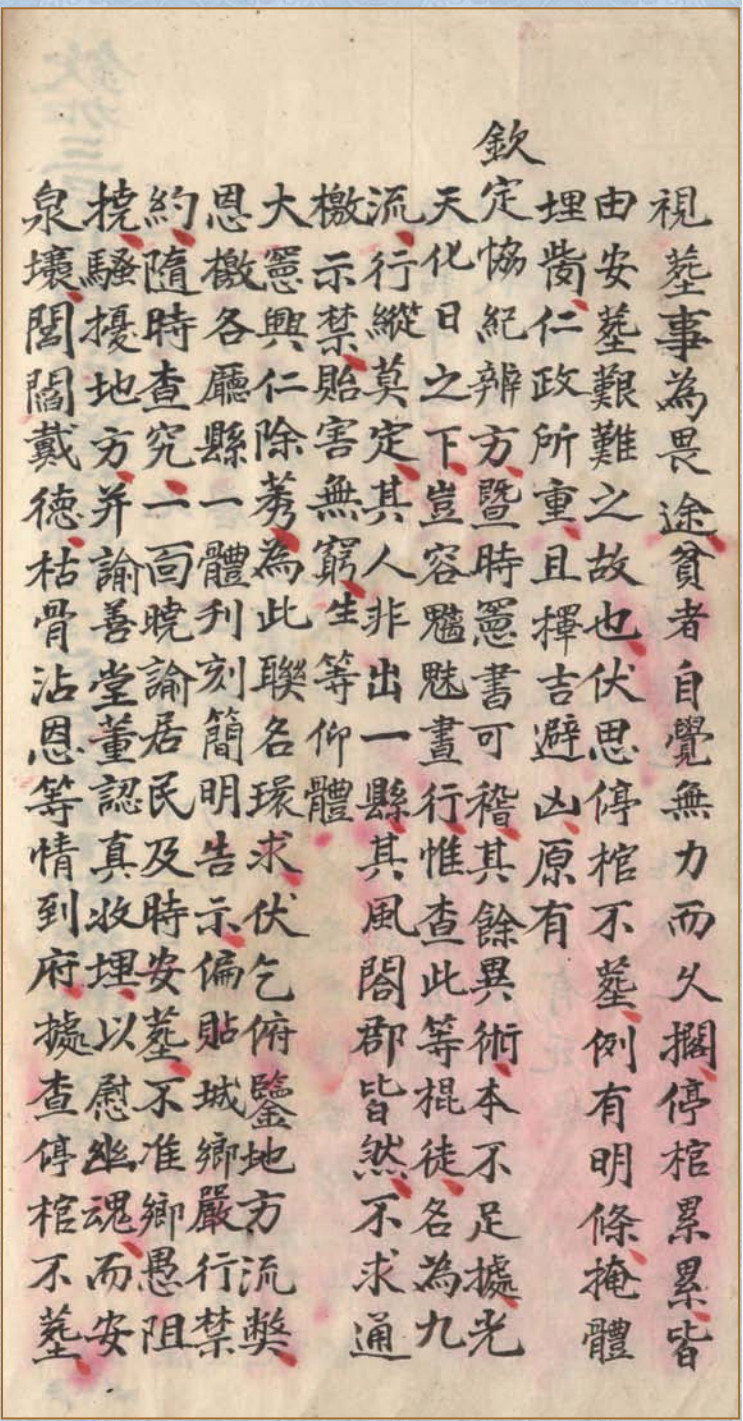 視塟事為畏途、貧者自覺無力而乆擱、停棺累累、皆
由安塟艱難之故也、伏思停棺不塟、例有明條、掩體
埋胔、仁政所重、且擇吉避凶、原有
欽定恊紀辨方、暨時憲書可稽、其餘異術、本不足據、光
天化日之下、豈容魑魅晝行、惟查此等棍徒、各為九
流、行縱莫定、其人非出一縣、其風閤郡皆然、不求通
檄示禁、貽害無窮、生等仰體
大憲興仁除莠、為此聯名環求、伏乞俯鑒地方流獘、
恩檄各廳縣一體刋刻簡明告示、偏貼城鄉嚴行禁
約、隨時查究、一面曉諭居民及時安塟、不准鄉愚阻
撓、騷擾地方、并諭善堂董認真收埋、以慰幽魂、而安
泉壤、閭閻戴德、枯骨沾恩等情到府、據查停棺不塟、